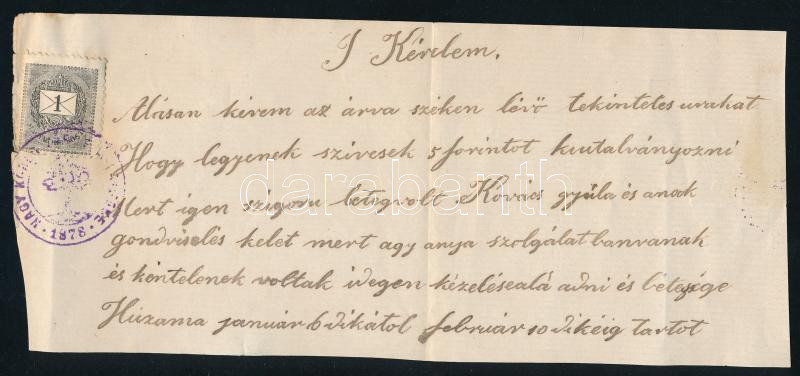 I Kérelem.
Alásan kérem az árva széken lévő tekintetes urakat
Hogy legyenek szivesek 5 forintot kiutalványozni
Mert igen szigoru beteg volt Kovács gyúla és anak
gondviselés kelet mert agy anya szolgálatban vanak
és kéntelenek voltak idegen kézelése alá adni és betegsége
Húzama január 6 dikától február 10 dikéig tartot
1
NAGY
1878
darabanth